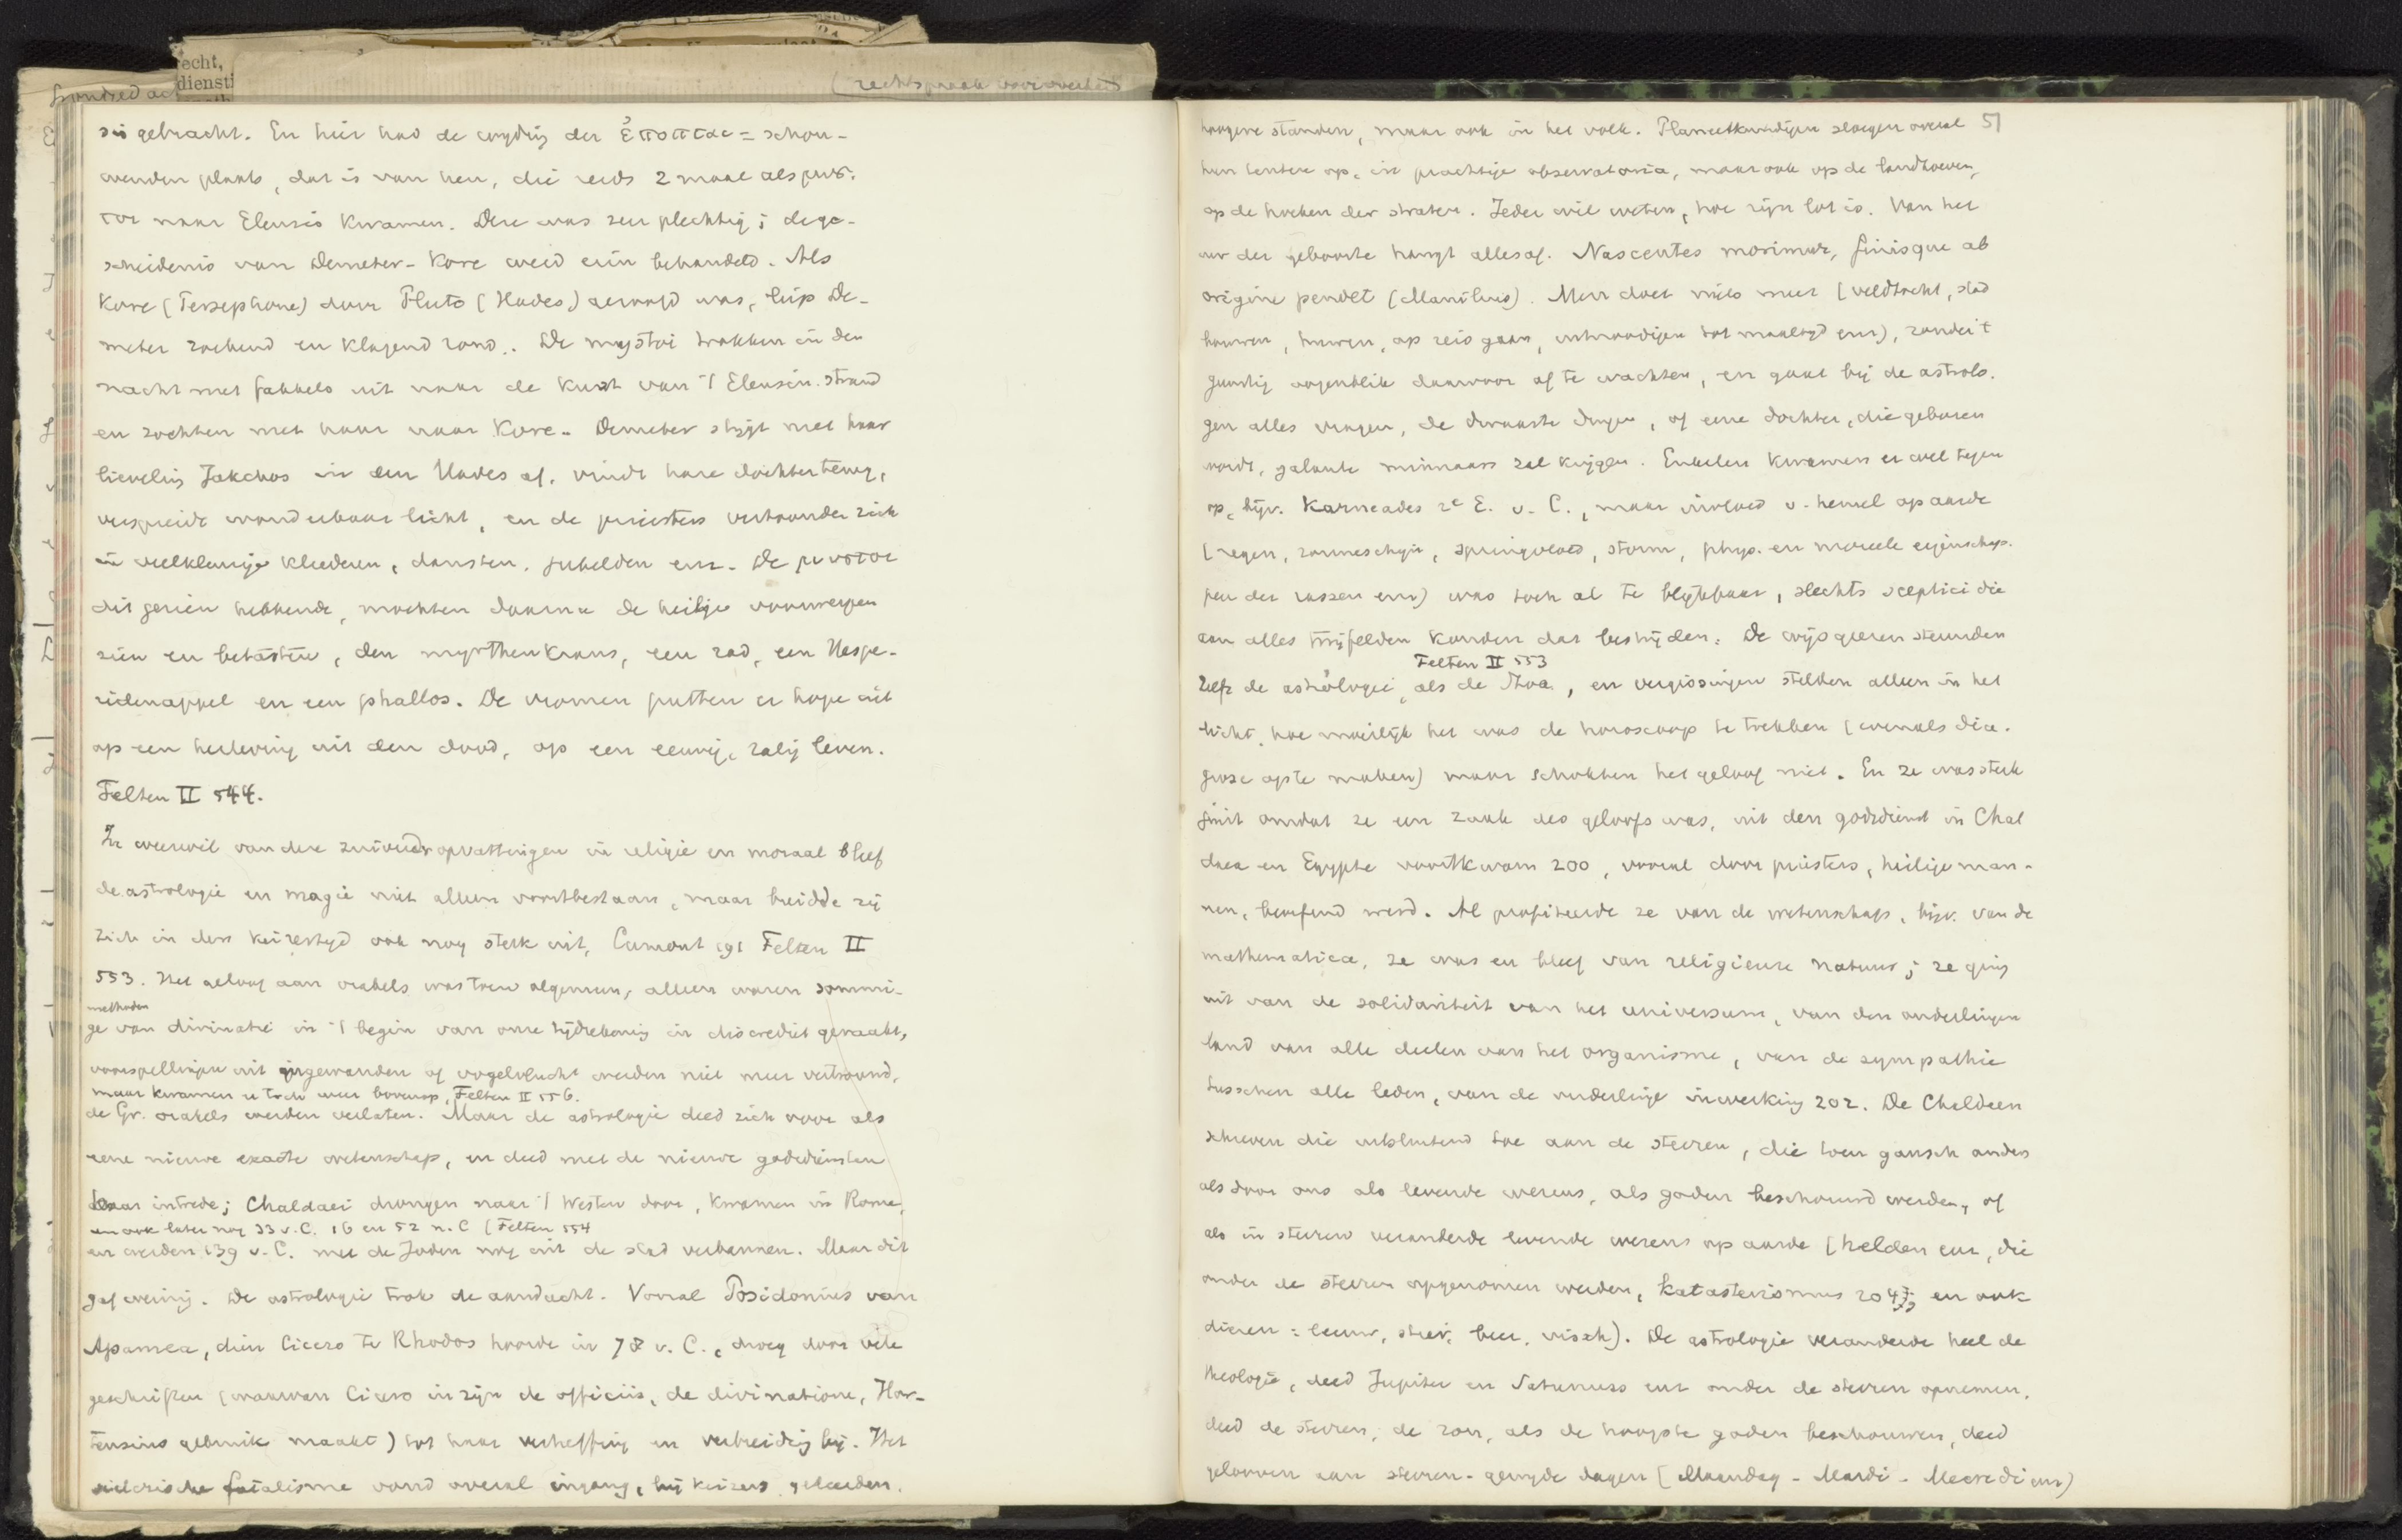 echt,
diensti
hondred
rechtspraak
sis gebracht. En hier had de wijding der ἐποπται = schou-
wenden plaats, dat is van hen, die reeds 2 maal als μυσ-
ται naar Eleusis kwamen. Deze was zeer plechtig; de ge-
schiedenis van Demeter-Kore werd erin behandeld. Als
Kore (Persephone) door Pluto (Hades) geroofd was, liep De-
meter zoekend en klagend rond. De mystai trokken in den
nacht met fakkels uit naar de kust van 't Eleusin. strand
en zochten met haar naar Kore. Demeter stijgt met haar
lieveling Jakchos in den Hades af, vindt hare dochter terug,
verspreidt wonderbaar licht, en de priesters vertoonden zich
in veelkleurige kleederen, dansten, jubelden enz. De μυσται
dit gezien hebbende, mochten daarna de heilige voorwerpen
zien en betasten, den myrthenkrans, een rad, een Hespe-
ridenappel en een phallos. De vromen putten er hope uit
op een herleving uit den dood, op een eeuwig, zalig leven.
Felten II 544.
In weerwil van deze zuiverder opvattingen in religie en moraal bleef
de astrologie en magie niet alleen voortbestaan, maar breidde zij
zich in den keizertijd ook nog sterk uit, Cumont 191 Felten II
553. Het geloof aan orakels was trouw algemeen, alleen waren sommi-
methoden
ge van divinatie in 't begin van onze tijdrekening in discrediet geraakt,
voorspellingen uit ingewanden of vogelvlucht werden niet meer vertrouwd,
maar kwamen er toch weer bovenop, Felten II 556.
de Gr. orakels werden verlaten. Maar de astrologie deed zich voor als
eene nieuwe exacte wetenschap, en deed met de nieuwe godsdiensten
haar intrede; Chaldaei drongen naar 't Westen door, kwamen in Rome,
en ook later nog 33 v.C. 16 en 52 n.C (Felten 554
en werden 139 v.C. met de Joden nog uit de stad verbannen. Maar dit
gaf weinig. De astrologie trok de aandacht. Vooral Posidonius van
Apamea, dien Cicero te Rhodos hoorde in 78 v. C., droeg door vele
geschriften (waarvan Cicero in zijn de officiis, de divinatione, Hor-
tensius gebruik maakt) tot haar verheffing en verbreiding bij. Het
siderische fatalisme vond overal ingang, bij keizers, geleerden,
51
hoogere standen, maar ook in het volk. Planeetkundigen sloegen overal
hun tenten op, in prachtige observatoria, maar ook op de landhoeven,
op de hoeken der straten. Ieder wil weten, hoe zijn lot is. Van het
uur der geboorte hangt alles af. Nascentes morimur, finisque ab
origine pendet (Manilius). Men doet niets meer (veldtocht, stad
bouwen, huwen, op reis gaan, uitnoodigen tot maaltijd enz), zonder 't
gunstig oogenblik daarvoor af te wachten, en gaat bij de astrolo-
gen alles vragen, de dwaaste dingen, of eene dochter, die geboren
wordt, galante minnaars zal krijgen. Enkelen kwamen er wel tegen
op, bijv. Karneades 2e E. v. C., maar invloed v. hemel op aarde
(regen, zonneschijn, springvloed, storm, phys. en moreele eigenschap-
pen der rassen enz) was toch al te blijkbaar, slechts sceptici die
aan alles twijfelden konden dat bestrijden. De wijsgeeren steunden
Felten II 553
zelfs de astrologie, als de Stoa, en vergissingen stelden alleen in het
licht, hoe moeilijk het was de horoscoop te trekken (evenals dia-
gnose op te maken) maar schokten het geloof niet. En ze was sterk
juist omdat ze een zaak des geloofs was, uit den godsdienst in Chal
daea en Egypte voortkwam 200, vooral door priesters, heilige man-
nen, beoefend werd. Al profiteerde ze van de wetenschap, bijv. van de
mathematica, ze was en bleef van religieuze natuur; ze ging
uit van de solidariteit van het universum, van den onderlingen
band van alle deelen van het organisme, van de sympathie
tusschen alle leden, van de onderlinge inwerking 202. De Chaldeen
schreven die uitsluitend toe aan de sterren, die toen gansch anders
als door ons als levende wezens, als goden beschouwd werden, of
als in sterren veranderde levende wezens op aarde (helden enz, die
onder de sterren opgenomen werden, katasterismus 204, en ook
dieren: leeuw, stier, beer, visch). De astrologie veranderde heel de
theologie, deed Jupiter en Saturnus enz onder de sterren opnemen,
deed de sterren, de zon, als de hoogste goden beschouwen, deed
gelooven aan sterren-gewijde dagen (Maandag - Mardi - Mercredi enz)